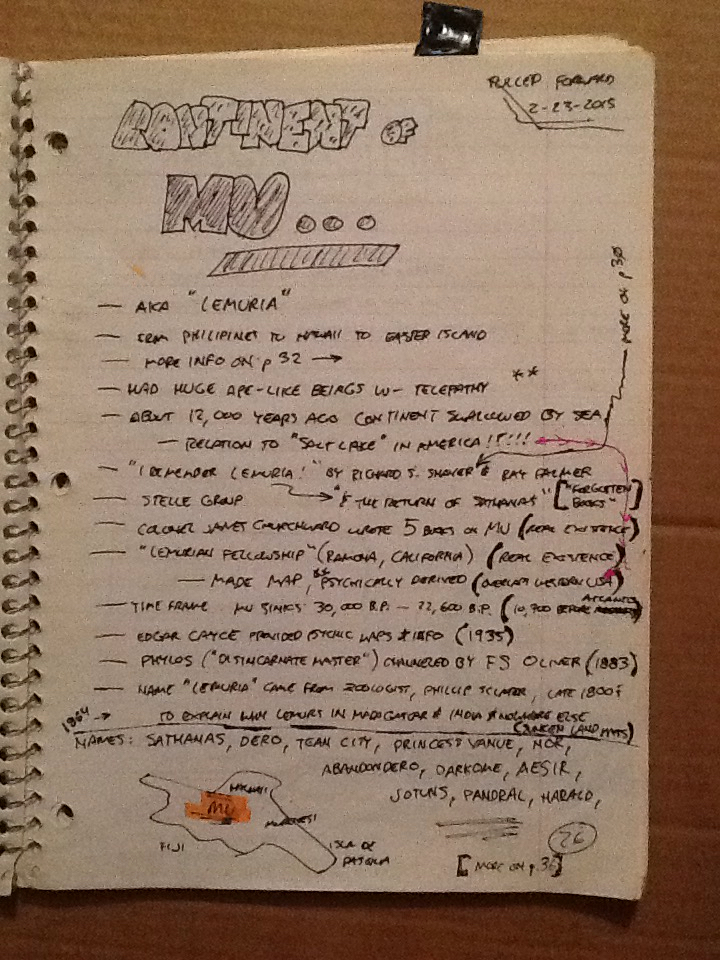 PULLED FORWARD
2-23-2015
CONTINENT OF
MU...
MORE ON p 30
— AKA "LEMURIA"
— FROM PHILIPINES TO HAWAII TO EASTER ISLAND
— MORE INFO ON p 32 →
— HAD HUGE APE-LIKE BEINGS W- TELEPATHY **
— ABOUT 12,000 YEARS AGO CONTINENT SWALLOWED BY SEA
— RELATION TO "SALT LAKE" IN AMERICA!!!!!
— "I REMEMBER LEMURIA!" BY RICHARD S. SHAVER & RAY PALMER
— STELLE GROUP → "& THE RETURN OF SATHANAS" ["FORGOTTEN BOOKS"]
— COLONEL JAMES CHURCHWARD WROTE 5 BOOKS ON MU (REAL EXISTENCE)
— "LEMURIAN FELLOWSHIP" (RAMONA, CALIFORNIA) (REAL EXISTENCE)
— MADE MAP, **PSYCHICALLY DERIVED (OVERLAPS WESTERN USA)
— TIME FRAME MU SINKS 30,000 B.P. — 22,600 B.P. (10,700 BEFORE ATLANTIS)
— EDGAR CAYCE PROVIDED PSYCHIC MAPS & INFO (1935)
— PHYLOS ("DISINCARNATE MASTER") CHANNELED BY FS OLIVER (1883)
— NAME "LEMURIA" CAME FROM ZOOLOGIST, PHILLIP SCLATER, LATE 1800s
1864 → TO EXPLAIN WHY LEMURS IN MADAGASCAR & INDIA & NOWHERE ELSE
(SUNKEN LAND MASS)
NAMES: SATHANAS, DERO, TEAN CITY, PRINCESS VANUE, NOR,
ABANDONDERO, DARKOME, AESIR,
JOTUNS, PANDRAL, HARALD,
HAWAII
MU
FIJI
ISLA DE
PASQUA
26
[MORE ON p. 36]